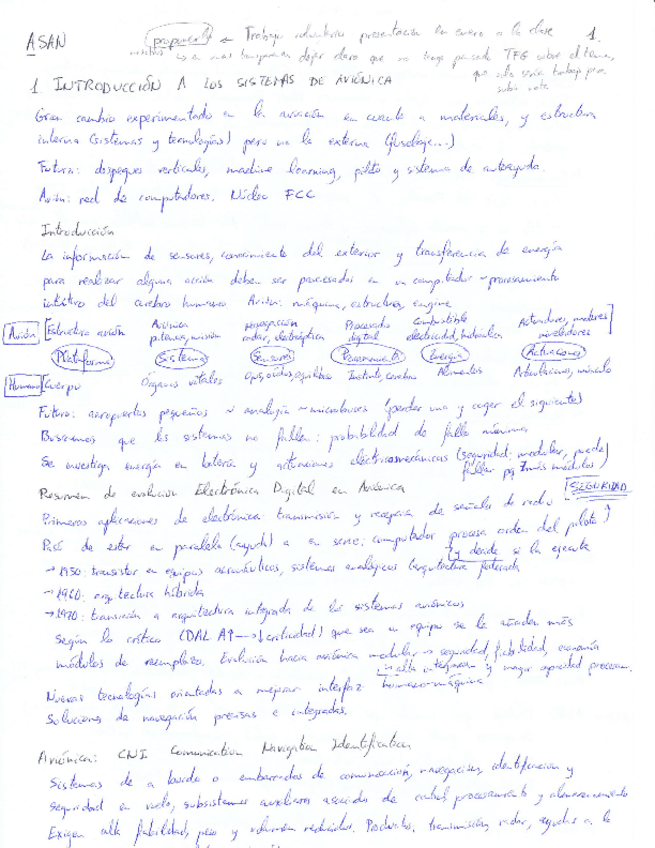 ASAN
Trabajo voluntario presentación en enero a la clase 1.
dejar claro que no tenga pensado TFG sobre el tema,
que solo sería trabajo para
subir nota
1 INTRODUCCIÓN A LOS SISTEMAS DE AVIÓNICA
Gran cambio experimentado en la aviación en cuanto a materiales, y estructura
interna (sistemas y tecnologías) pero no la externa (fuselaje...)
Futuro: despegues verticales, machine learning, piloto y sistema de autoayuda.
Avión: red de computadores. Núcleo FCC
Introducción
La información de sensores, conocimiento del exterior y transferencia de energía
para realizar alguna acción deben ser procesados en un computador ~ procesamiento
intuitivo del cerebro humano Avión: máquina, estructura, engine
Avión Estructura avión Aviónica navegación Procesado Combustible Actuadores, motores
pitanes, misión radar, electroóptica digital electricidad, hidráulica niveladores
Plataforma Sistema Sensores Procesamiento Energía Actuaciones
Humano Cuerpo Órganos vitales Ojos, oídos, equilibrio Instinto, cerebro Alimentos Articulaciones, músculo
Futuro: aeropuertos pequeños ~ analogía ~ microbuses (perder uno y coger el siguiente)
Buscamos que los sistemas no fallen: probabilidad de fallo mínima
Se investiga energía en batería y actuaciones electromecánicas (seguridad: modular, puede
fallar pq más módulos)
Resumen de evolución Electrónica Digital en Aviónica SEGURIDAD
Primeras aplicaciones de electrónica transmisión y recepción de señales de radio
Pasó de estar en paralelo (ayuda) a en serie: computador procesa orden del piloto
y decide si la ejecuta
→ 1950: transistor en equipos aeronáuticos, sistemas analógicos (arquitectura federada
→ 1960: arquitectura híbrida
→ 1970: transición a arquitectura integrada de los sistemas aviónicos
Según lo crítico (DAL A↑ --→ ↓ criticidad) que sea un equipo se le añaden más
módulos de reemplazo. Evolución hacia aviónica modular → seguridad, fiabilidad, economía
alta integración y mayor capacidad procesam.
Nuevas tecnologías orientadas a mejorar interfaz humano-máquina
Soluciones de navegación precisas e integradas.
Aviónica: CNI Communication Navigation Identification
Sistemas de a bordo o embarcados de comunicación, navegación, identificación y
seguridad en vuelo, subsistemas auxiliares asociado de control, procesamiento y almacenamiento
Exigen alta fiabilidad, peso y volumen reducidos. Productos, transmisión, radar, ayudas a la